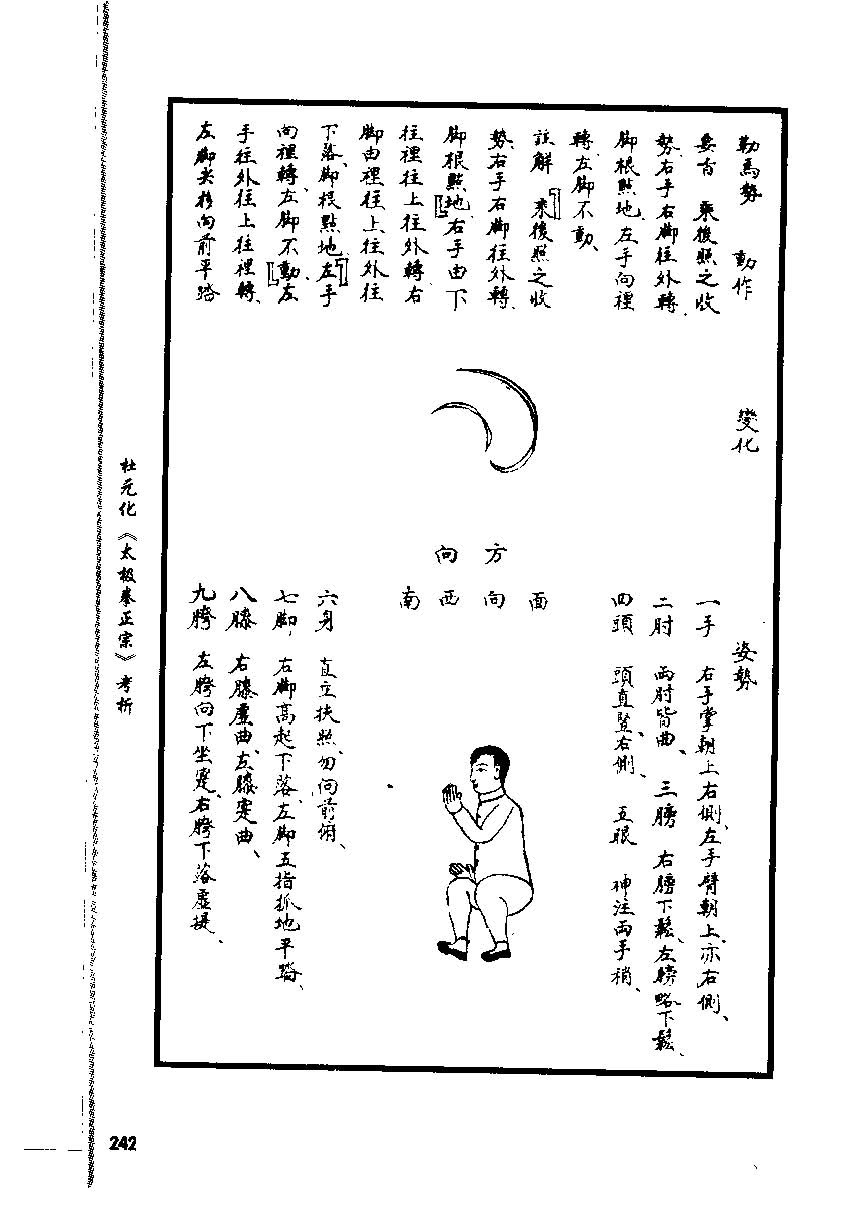 勒馬勢　動作
要旨　乘後照之收
勢、右手右脚往外轉、
脚根點地、左手向裡
轉、左脚不動、
註解　乘後照之收
勢、右手右脚往外轉、
脚根點地、右手由下
往裡往上往外轉、右
脚由裡往上往外往
下落、脚根點地、左手
向裡轉、左脚不動、左
手往外往上往裡轉、
左脚尖移向前平踏
變化
方向
面向西南
姿勢
一手　右手掌朝上右側、左手臂朝上、亦右側、
二肘　兩肘皆曲、　三膀　右膀下鬆、左膀略下鬆、
四頭　頭直豎右側、　五眼　神注兩手梢、
六身　直立扶照、勿向前俯、
七脚　右脚高起下落、左脚五指抓地平踏、
八膝　右膝虛曲、左膝寔曲、
九胯　左胯向下坐寔、右胯下落虛提、
杜元化《太极拳正宗》考析
242